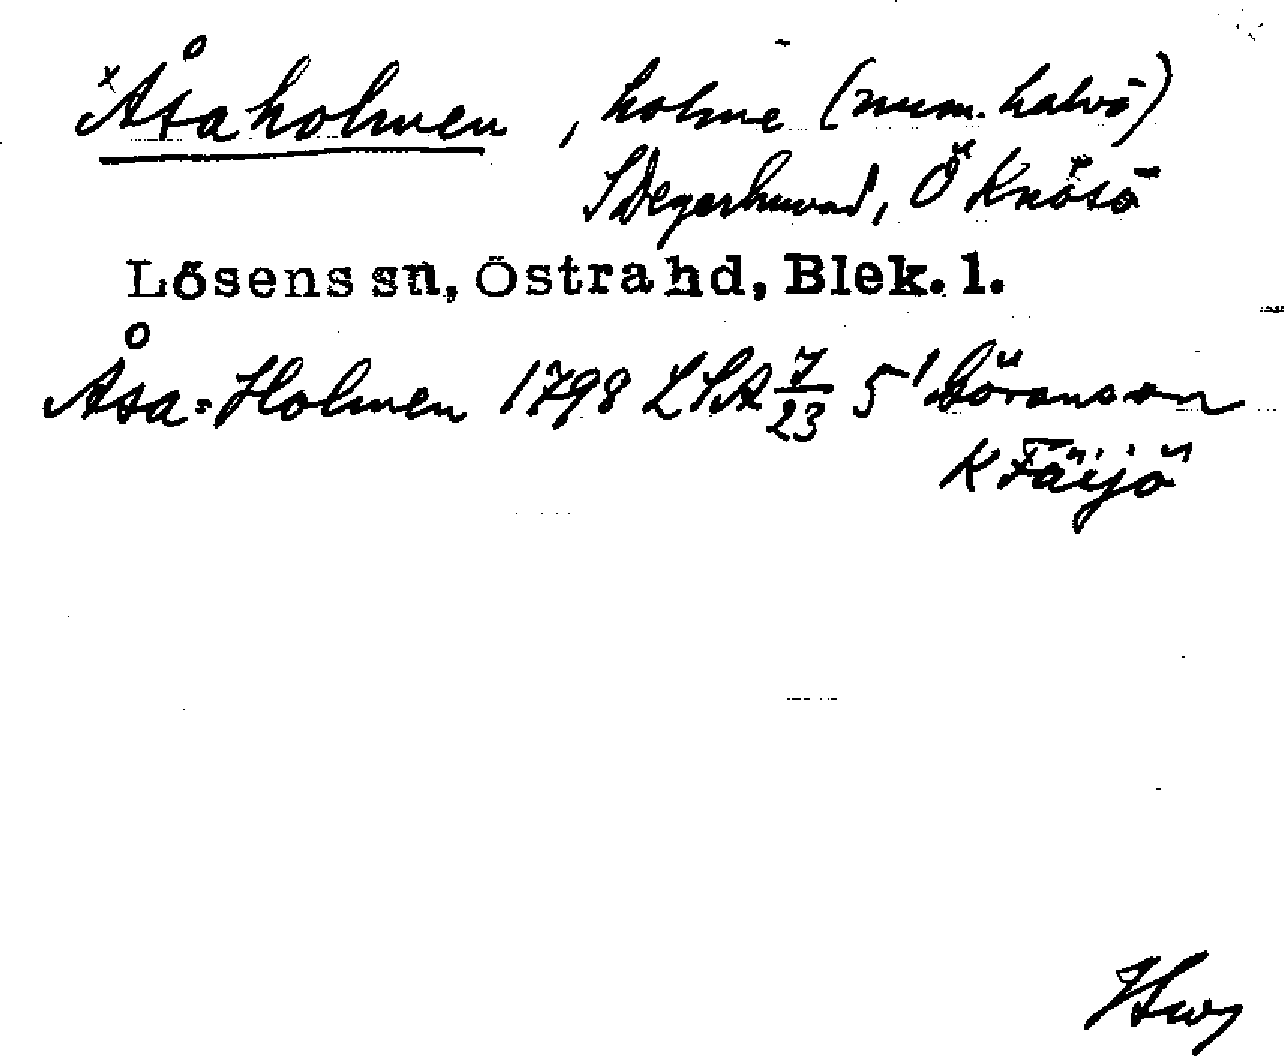 ×Åsaholmen, holme (num. halvö)
S Degerhuvud, Ö Knösö
Lösens sn, Östra hd, Blek. l.
Åsa-Holmen 1798 LSA 7/23 5' Göransson
K Fäijö